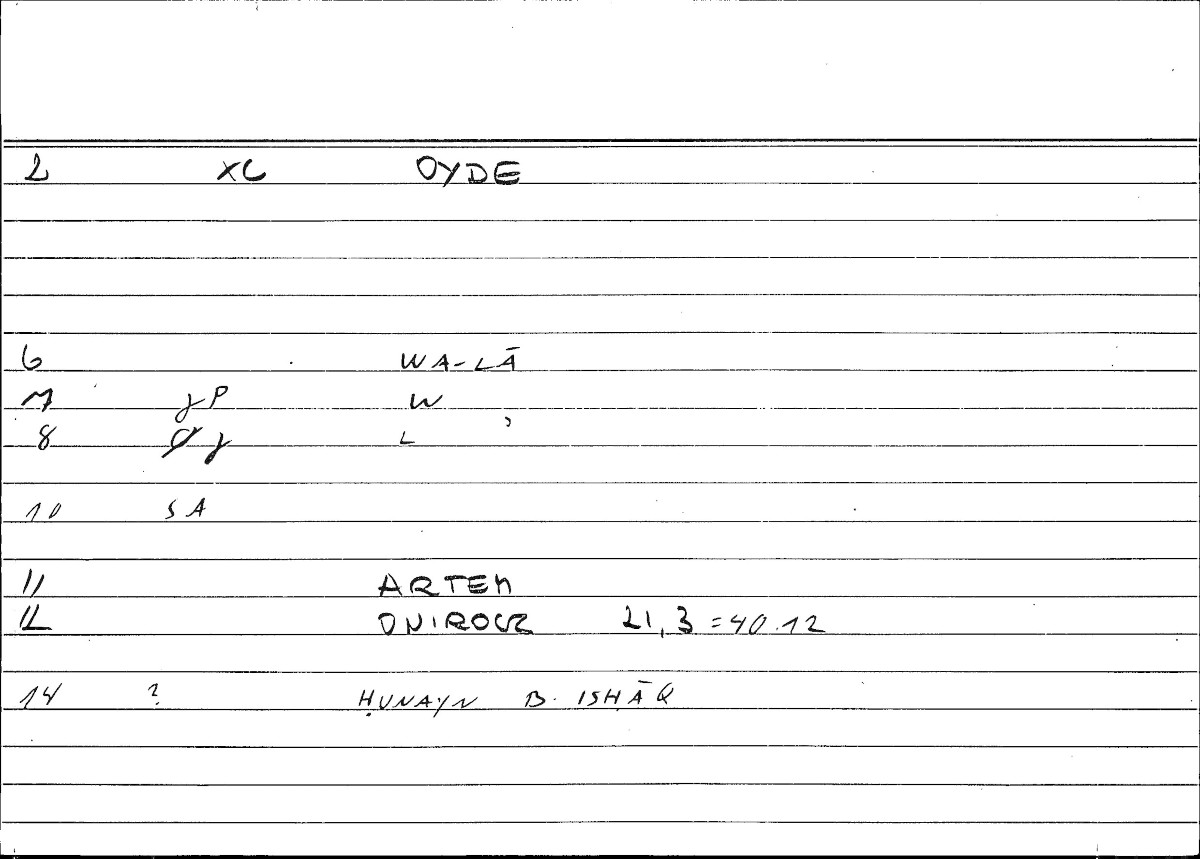 2 XC OYDE
6 WA-LĀ
7 γP W
8 γ L
10 SA
11 ARTEM
12 ONIROCR 21,3 = 40.12
14 ? ḤUNAYN B. ISḤĀQ